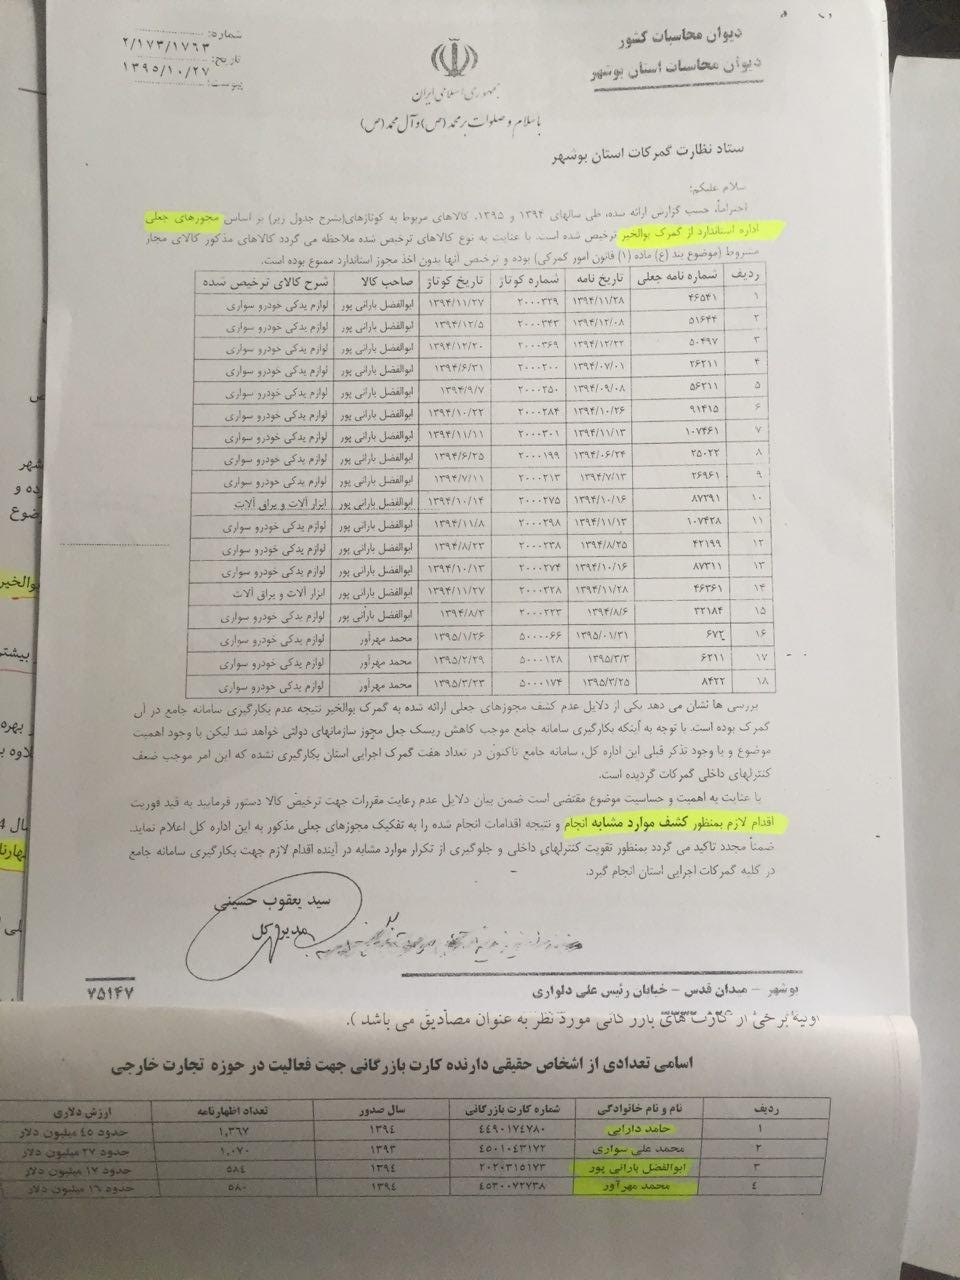 دیوان محاسبات کشور
دیوان محاسبات استان بوشهر
شماره:
۲/۱۷۳/۱۷۶۳
تاریخ:
۱۳۹۵/۱۰/۲۷
پیوست:
جمهوری اسلامی ایران
با سلام و صلوات بر محمد (ص) و آل محمد (ص)
ستاد نظارت گمرکات استان بوشهر
سلام علیکم:
احتراماً، حسب گزارش ارائه شده، طی سالهای ۱۳۹۴ و ۱۳۹۵، کالاهای مربوط به کوتاژهای(بشرح جدول زیر) بر اساس مجوزهای جعلی
اداره استاندارد از گمرک بوالخیر ترخیص شده است. با عنایت به نوع کالاهای ترخیص شده ملاحظه می گردد کالاهای مذکور کالای مجاز
مشروط (موضوع بند (ع) ماده (۱) قانون امور گمرکی) بوده و ترخیص آنها بدون اخذ مجوز استاندارد ممنوع بوده است.
ردیف شماره نامه جعلی تاریخ نامه شماره کوتاژ تاریخ کوتاژ صاحب کالا شرح کالای ترخیص شده
۱ ۴۶۵۴۱ ۱۳۹۴/۱۱/۲۸ ۲۰۰۰۳۲۹ ۱۳۹۴/۱۱/۲۷ ابوالفضل بارانی پور لوازم یدکی خودرو سواری
۲ ۵۱۶۴۴ ۱۳۹۴/۱۲/۰۸ ۲۰۰۰۳۴۳ ۱۳۹۴/۱۲/۵ ابوالفضل بارانی پور لوازم یدکی خودرو سواری
۳ ۵۰۴۹۷ ۱۳۹۴/۱۲/۲۲ ۲۰۰۰۳۶۹ ۱۳۹۴/۱۲/۲۰ ابوالفضل بارانی پور لوازم یدکی خودرو سواری
۴ ۲۶۲۱۱ ۱۳۹۴/۰۷/۰۱ ۲۰۰۰۲۰۰ ۱۳۹۴/۶/۳۱ ابوالفضل بارانی پور لوازم یدکی خودرو سواری
۵ ۵۶۲۱۱ ۱۳۹۴/۰۹/۰۸ ۲۰۰۰۲۵۰ ۱۳۹۴/۹/۷ ابوالفضل بارانی پور لوازم یدکی خودرو سواری
۶ ۹۱۴۱۵ ۱۳۹۴/۱۰/۲۶ ۲۰۰۰۲۸۴ ۱۳۹۴/۱۰/۲۲ ابوالفضل بارانی پور لوازم یدکی خودرو سواری
۷ ۱۰۷۴۶۱ ۱۳۹۴/۱۱/۱۳ ۲۰۰۰۳۰۱ ۱۳۹۴/۱۱/۱۱ ابوالفضل بارانی پور لوازم یدکی خودرو سواری
۸ ۲۵۰۲۲ ۱۳۹۴/۰۶/۲۴ ۲۰۰۰۱۹۹ ۱۳۹۴/۶/۲۵ ابوالفضل بارانی پور لوازم یدکی خودرو سواری
۹ ۲۶۹۶۱ ۱۳۹۴/۷/۱۳ ۲۰۰۰۲۱۳ ۱۳۹۴/۷/۱۱ ابوالفضل بارانی پور لوازم یدکی خودرو سواری
۱۰ ۸۷۲۹۱ ۱۳۹۴/۱۰/۱۶ ۲۰۰۰۲۷۵ ۱۳۹۴/۱۰/۱۴ ابوالفضل بارانی پور ابزار آلات و یراق آلات
۱۱ ۱۰۷۴۲۸ ۱۳۹۴/۱۱/۱۳ ۲۰۰۰۲۹۸ ۱۳۹۴/۱۱/۸ ابوالفضل بارانی پور لوازم یدکی خودرو سواری
۱۲ ۴۲۱۹۹ ۱۳۹۴/۸/۲۵ ۲۰۰۰۲۳۸ ۱۳۹۴/۸/۲۳ ابوالفضل بارانی پور لوازم یدکی خودرو سواری
۱۳ ۸۷۳۱۱ ۱۳۹۴/۱۰/۱۶ ۲۰۰۰۲۷۴ ۱۳۹۴/۱۰/۱۳ ابوالفضل بارانی پور لوازم یدکی خودرو سواری
۱۴ ۴۶۳۶۱ ۱۳۹۴/۱۱/۲۸ ۲۰۰۰۳۲۸ ۱۳۹۴/۱۱/۲۷ ابوالفضل بارانی پور ابزار آلات و یراق آلات
۱۵ ۳۲۱۸۴ ۱۳۹۴/۸/۶ ۲۰۰۰۲۲۳ ۱۳۹۴/۸/۳ ابوالفضل بارانی پور لوازم یدکی خودرو سواری
۱۶ ۶۷۲ ۱۳۹۵/۰۱/۳۱ ۵۰۰۰۰۶۶ ۱۳۹۵/۱/۲۶ محمد مهرآور لوازم یدکی خودرو سواری
۱۷ ۶۲۱۱ ۱۳۹۵/۳/۳ ۵۰۰۰۱۲۸ ۱۳۹۵/۲/۲۹ محمد مهرآور لوازم یدکی خودرو سواری
۱۸ ۸۴۲۲ ۱۳۹۵/۳/۲۵ ۵۰۰۰۱۷۴ ۱۳۹۵/۳/۲۳ محمد مهرآور لوازم یدکی خودرو سواری
بررسی ها نشان می دهد یکی از دلایل عدم کشف مجوزهای جعلی ارائه شده به گمرک بوالخیر نتیجه عدم بکارگیری سامانه جامع در آن
گمرک بوده است. با توجه به اینکه بکارگیری سامانه جامع موجب کاهش ریسک جعل مجوز سازمانهای دولتی خواهد شد لیکن با وجود اهمیت
موضوع و با وجود تذکر قبلی این اداره کل، سامانه جامع تاکنون در تعداد هفت گمرک اجرایی استان بکارگیری نشده که این امر موجب ضعف
کنترلهای داخلی گمرکات گردیده است.
با عنایت به اهمیت و حساسیت موضوع مقتضی است ضمن بیان دلایل عدم رعایت مقررات جهت ترخیص کالا دستور فرمایید به قید فوریت
اقدام لازم بمنظور کشف موارد مشابه انجام و نتیجه اقدامات انجام شده را به تفکیک مجوزهای جعلی مذکور به این اداره کل اعلام نماید.
ضمناً مجدد تاکید می گردد بمنظور تقویت کنترلهای داخلی و جلوگیری از تکرار موارد مشابه در آینده اقدام لازم جهت بکارگیری سامانه جامع
در کلیه گمرکات اجرایی استان انجام گیرد.
سید یعقوب حسینی
مدیر کل
بوشهر – میدان قدس – خیابان رئیس علی دلواری
۷۵۱۴۷
اولیه برخی از کارت های بازرگانی مورد نظر به عنوان مصادیق می باشد ).
اسامی تعدادی از اشخاص حقیقی دارنده کارت بازرگانی جهت فعالیت در حوزه تجارت خارجی
ردیف نام و نام خانوادگی شماره کارت بازرگانی سال صدور تعداد اظهارنامه ارزش دلاری
۱ حامد دارابی ٤٤٩٠١٧٤٧٨٠ ١٣٩٤ ١,٣٦٧ حدود ٤٥ میلیون دلار
۲ محمد علی سواری ٤٥٠١٠٤٣١٧٢ ١٣٩٣ ١,٠٧٠ حدود ٢٧ میلیون دلار
۳ ابوالفضل بارانی پور ٢٠٢٠٣١٥١٧٣ ١٣٩٤ ٥٨٤ حدود ١٧ میلیون دلار
٤ محمد مهرآور ٤٥٣٠٠٧٢٧٣٨ ١٣٩٤ ٥٨٠ حدود ١٦ میلیون دلار